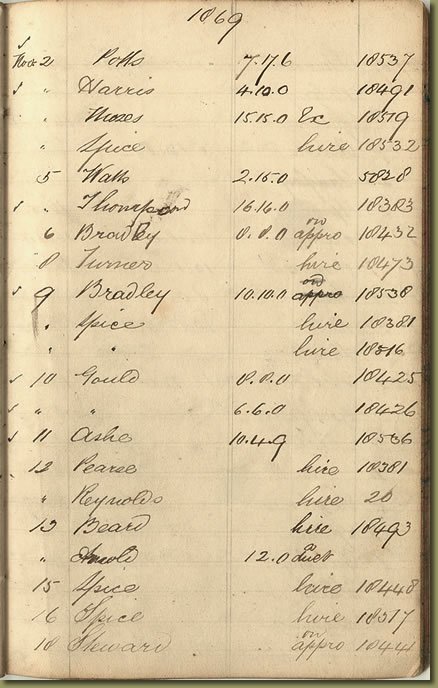 1869
Nov 2 Potts 7.17.6 18537
s " Harris 4.10.0 18491
" Moses 15.15.0 Ex 18519
" Spice hire 18532
5 Watts 2.15.0 5828
s " Thompson 16.16.0 18383
6 Bradley 8.8.0 on appro 18432
8 Turner hire 18473
s 9 Bradley 10.10.0 on appro 18538
" Spice hire 18381
" " hire 18516
s 10 Gould 8.8.0 18425
s " " 6.6.0 18426
s 11 Ashe 10.4.9 18536
12 Pearse hire 18381
" Reynolds hire 20
13 Beard hire 18493
" Arnold 12.0 duet
15 Spice hire 18448
16 Spice hire 18517
18 Steward on appro 18441